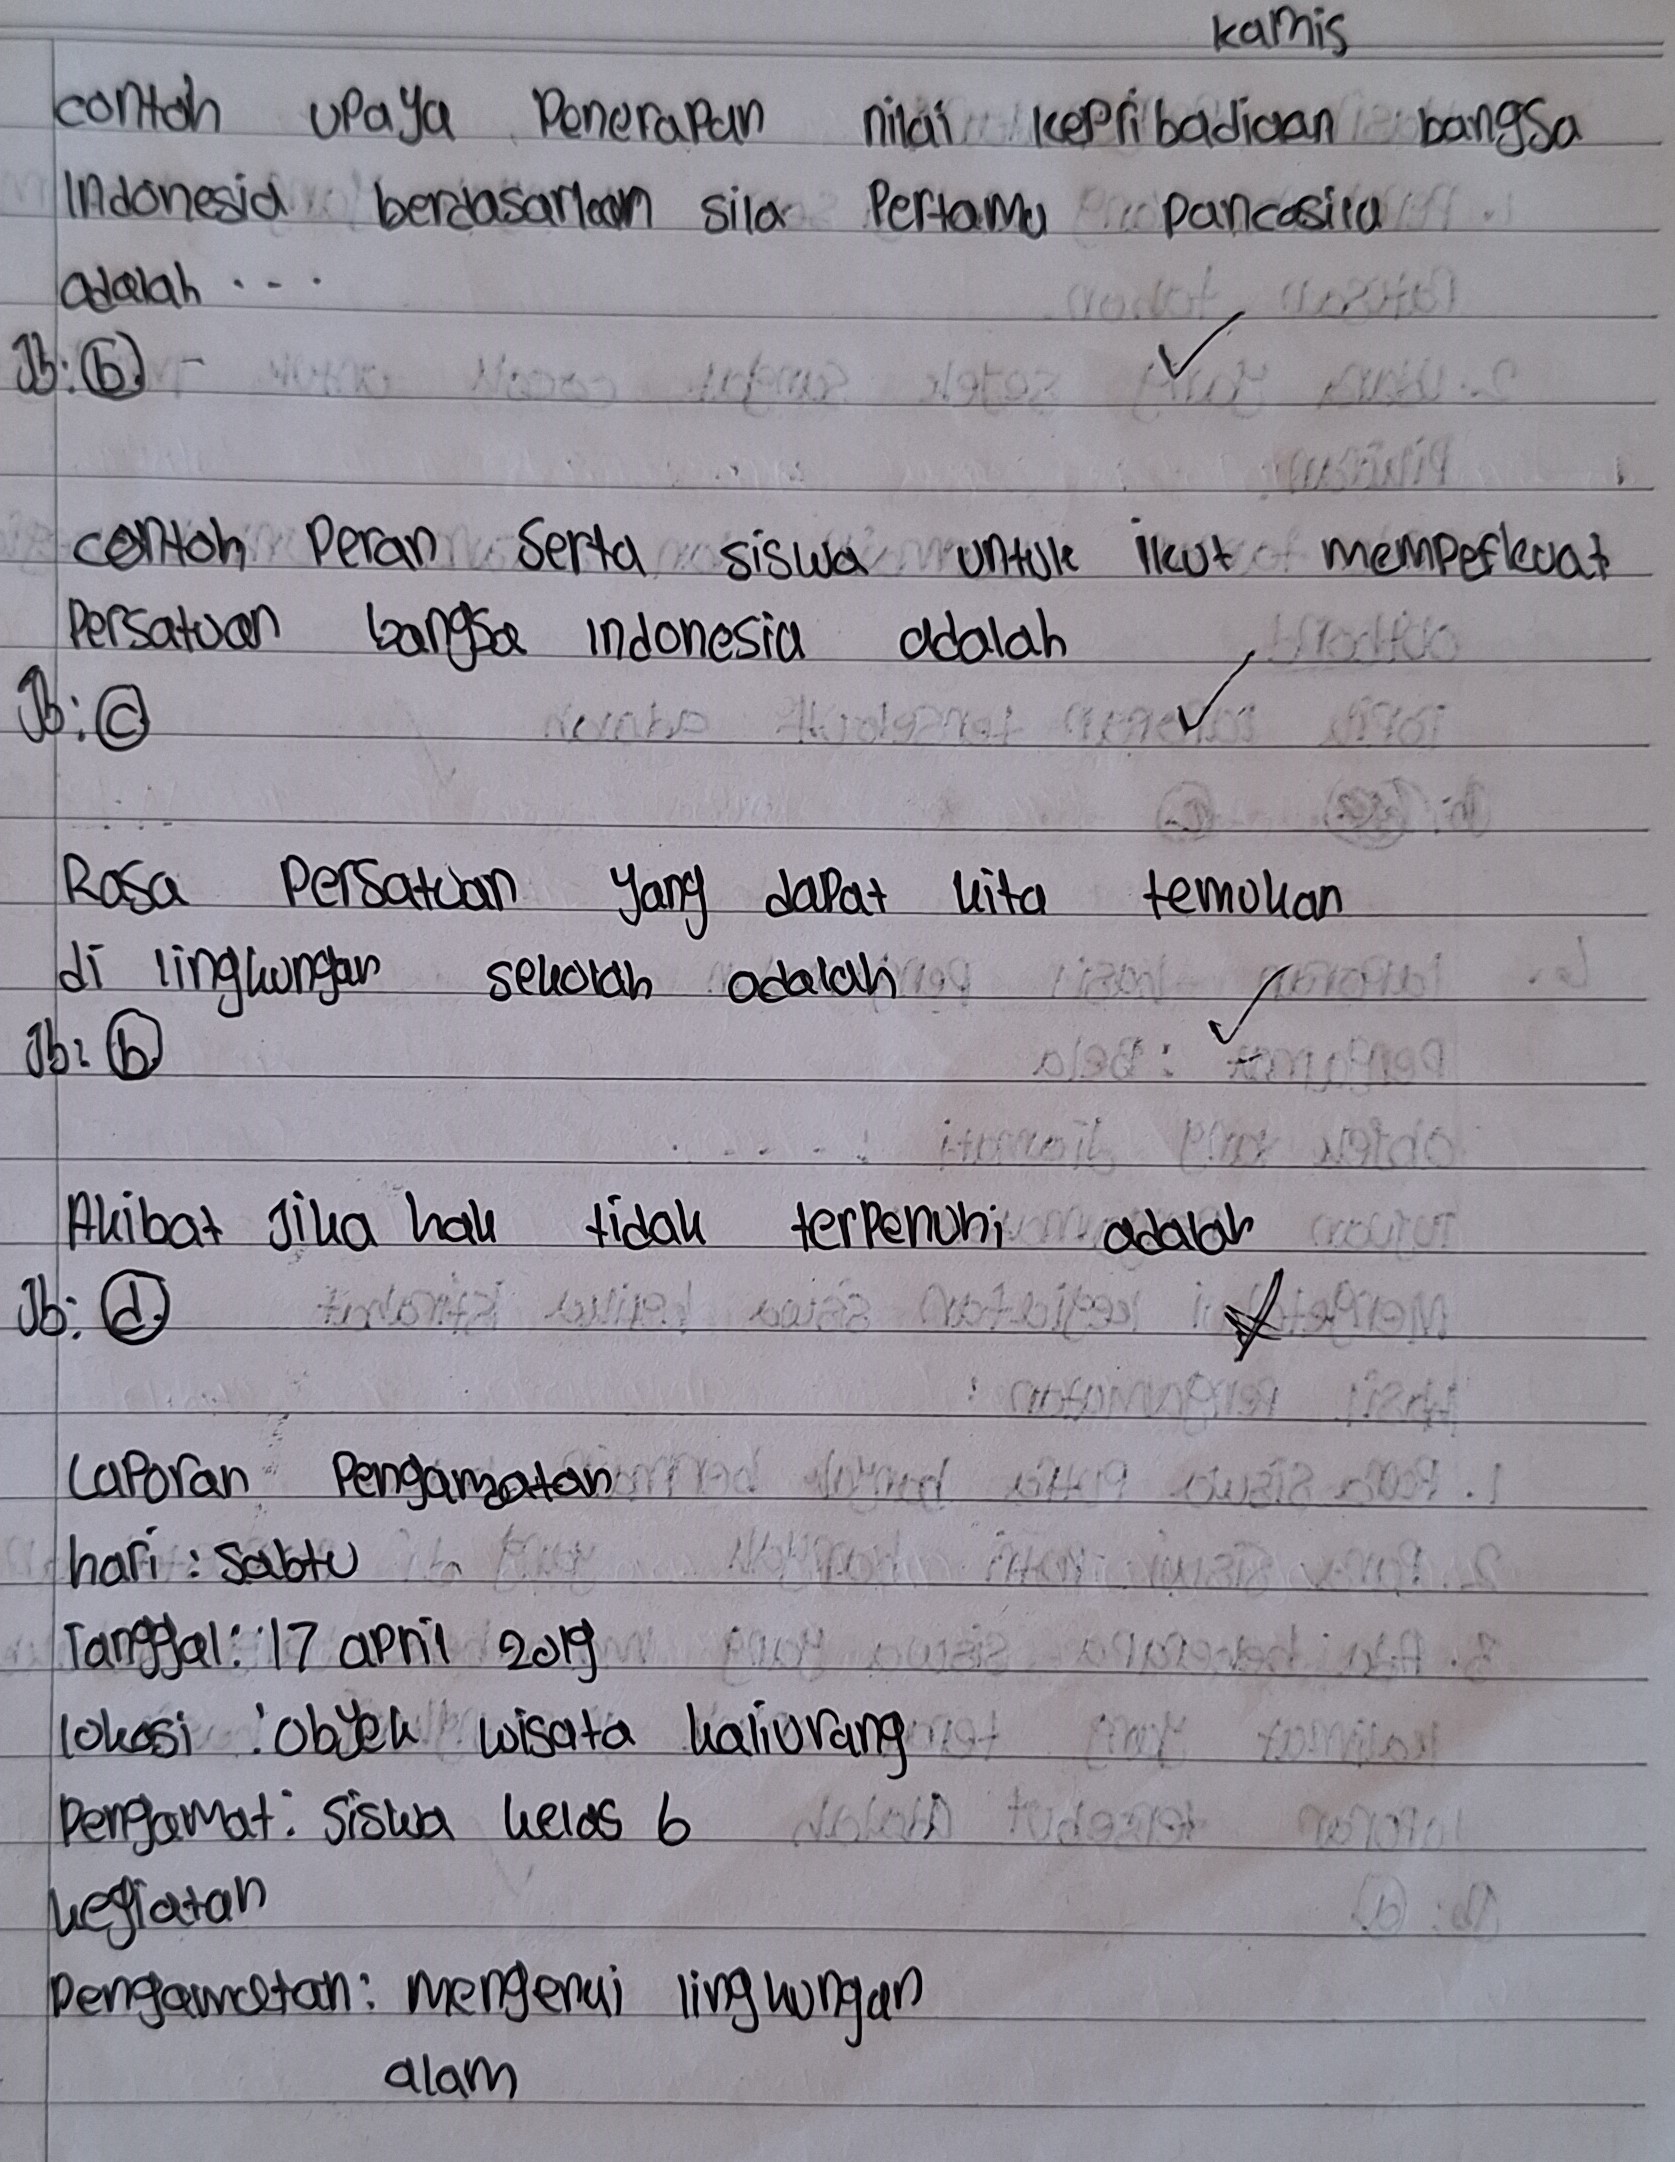 kamis
contoh upaya Penerapan nilai kepribadiaan bangsa
Indonesia berdasarkan sila Pertama pancasila
adalah ....
Jb: (b) -
contoh Peran Serta siswa untuk ikut memperkuat
Persatuan bangsa indonesia adalah
Jb: (c)
Rasa Persatuan yang dapat kita temukan
di lingkungan sekolah adalah
Jb: (b)
Akibat Jika hak tidak terpenuhi adalah
Jb: (d)
Laporan Pengamatan
hari : Sabtu
Tanggal : 17 april 2019
lokasi : obyek wisata kaliurang
Pengamat : Siswa kelas 6
kegiatan
Pengamatan : mengenai lingkungan
alam